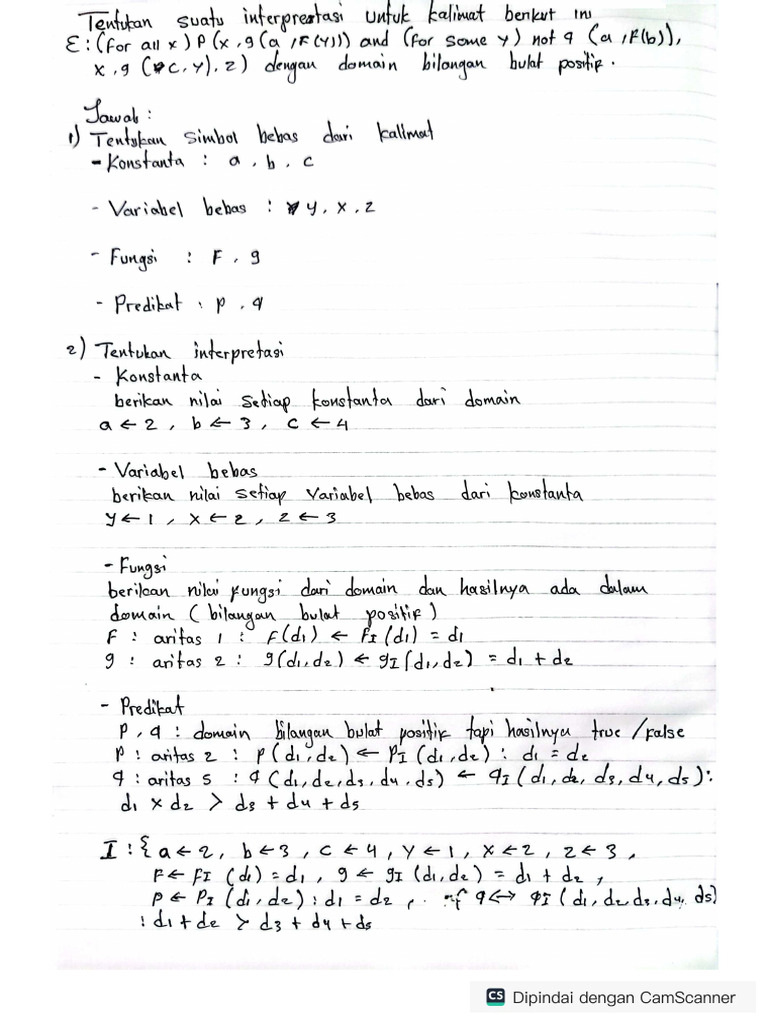 Tentukan suatu interprestasi untuk kalimat berikut ini
E : (for all x) P (x , g (a , F (Y))) and (for some y) not q (a , F(b)),
x , g (c, y), z) dengan domain bilangan bulat positif .
Jawab :
1) Tentukan simbol bebas dari kalimat
- Konstanta : a , b , c
- Variabel bebas : y, x , z
- Fungsi : F , g
- Predikat , p , q
2) Tentukan interpretasi
- Konstanta
berikan nilai setiap konstanta dari domain
a ← 2 , b ← 3 , c ← 4
- Variabel bebas
berikan nilai setiap variabel bebas dari konstanta
y ← 1 , x ← 2 , z ← 3
- Fungsi
berikan nilai fungsi dari domain dan hasilnya ada dalam
domain ( bilangan bulat positif )
F : aritas 1 : F(d1) ← FI (d1) = d1
g : aritas 2 : g(d1,d2) ← gI (d1,d2) = d1 + d2
- Predikat
P , q : domain bilangan bulat positif tapi hasilnya true / false
P : aritas 2 : P (d1,d2) ← PI (d1,d2) : d1 = d2
q : aritas 5 : q (d1,d2,d3,d4,d5) ← qI (d1, d2, d3, d4, d5) :
d1 x d2 > d3 + d4 + d5
I : { a ← 2, b ← 3 , c ← 4 , Y ← 1 , X ← 2 , z ← 3 ,
F ← FI (d1) = d1 , g ← gI (d1,d2) = d1 + d2 ,
P ← PI (d1,d2) : d1 = d2 , q ↔ qI (d1, d2, d3, d4, d5)
: d1 + d2 > d3 + d4 + d5
CS Dipindai dengan CamScanner